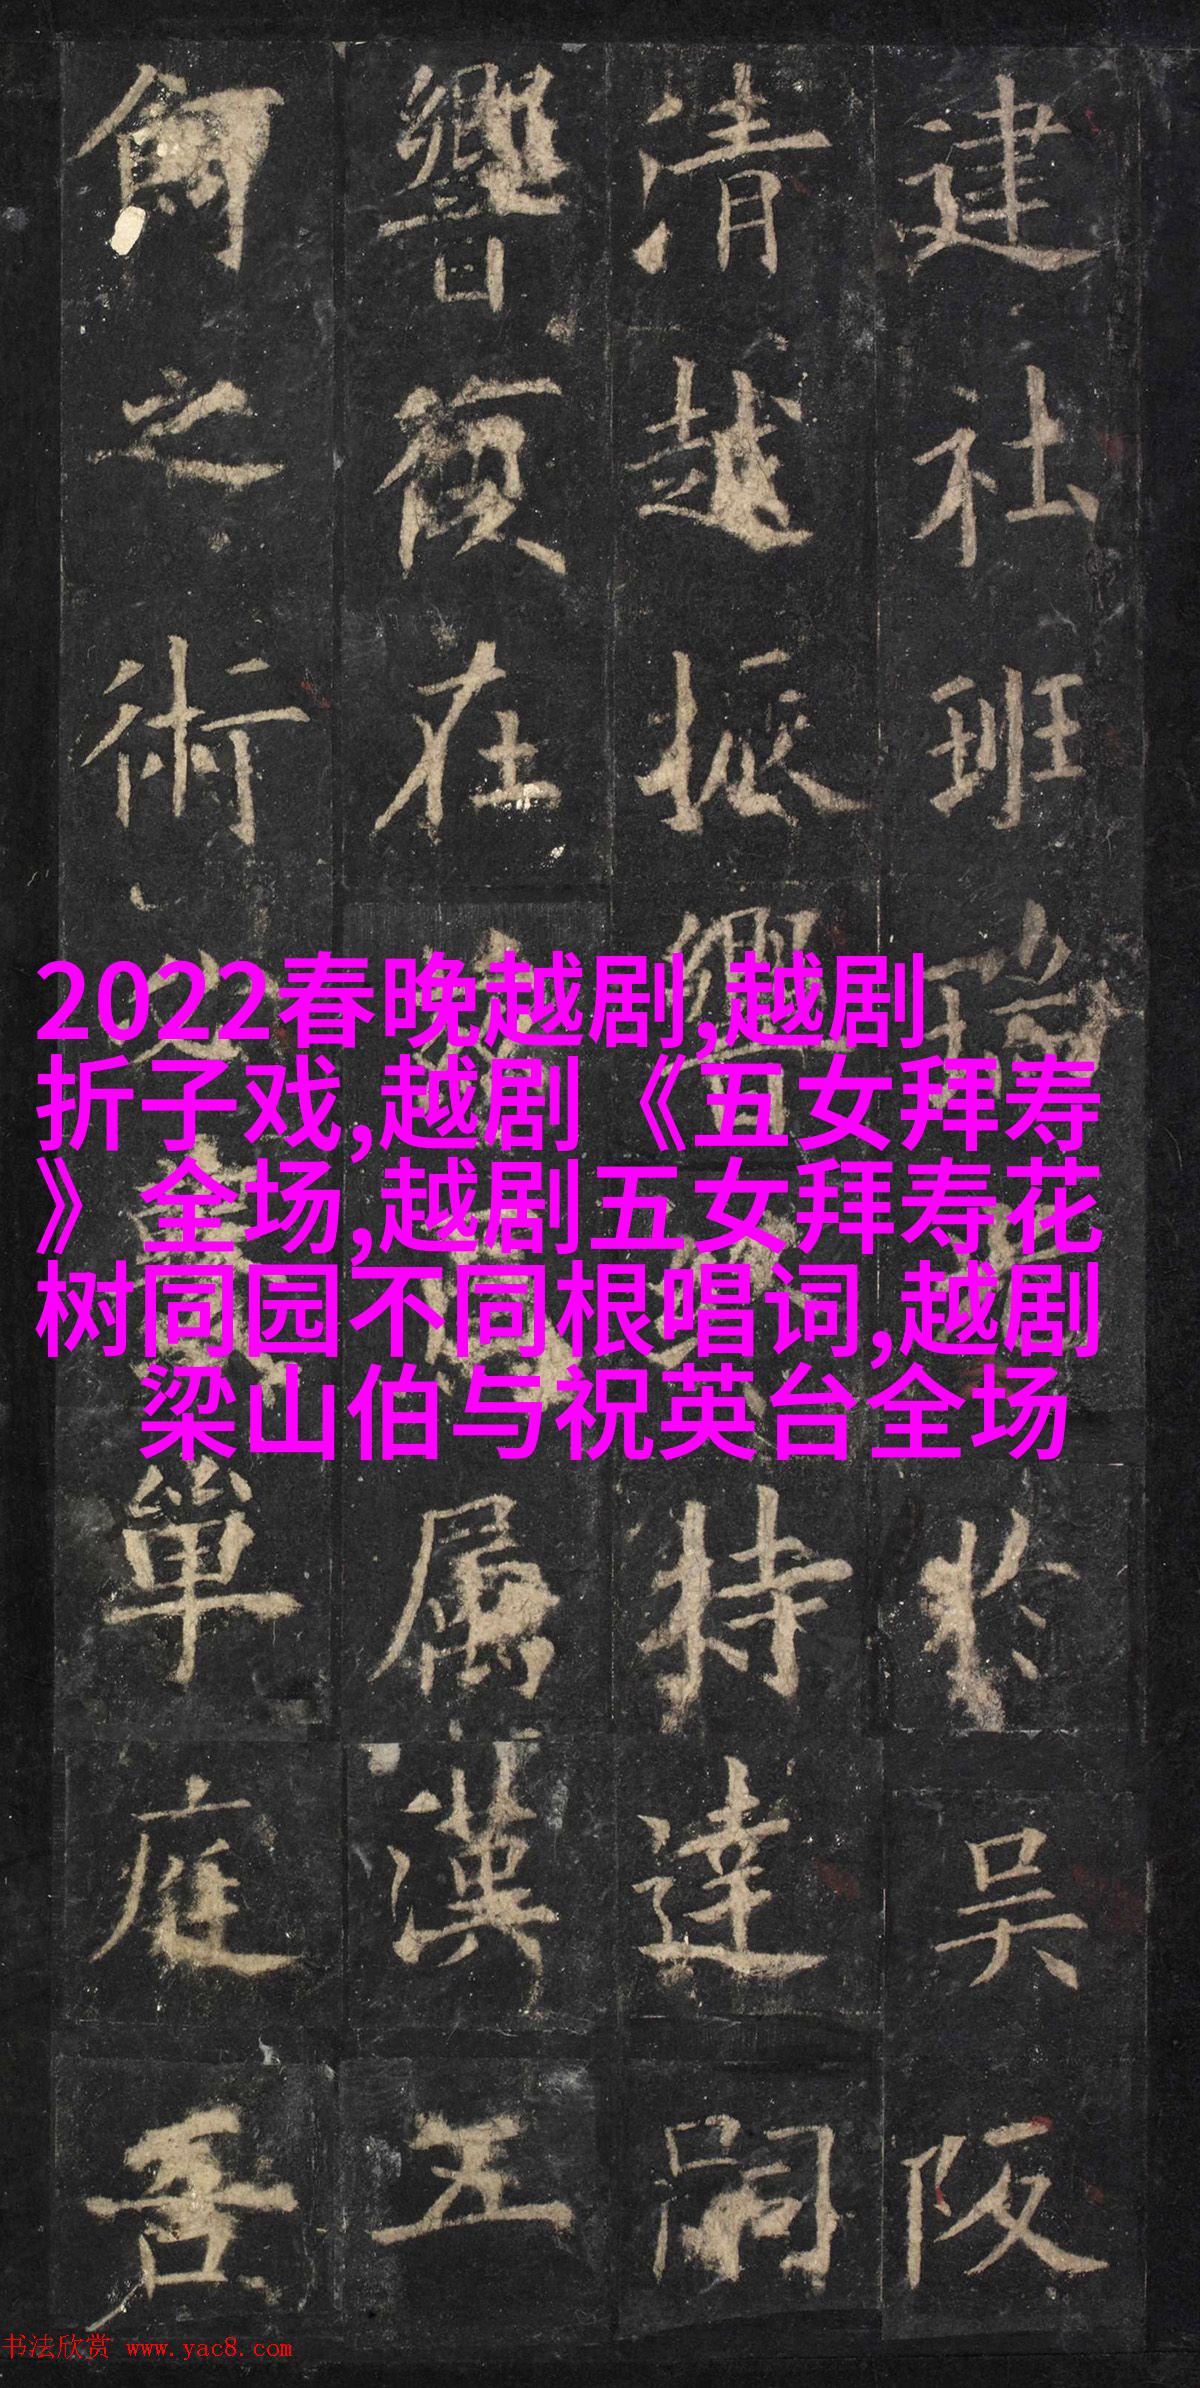 建社班瑞於吴阪
清越振響特達嗣
響復在屬漢五
飼之術單庭吾
2022春晚越剧,越剧
折子戏,越剧《五女拜寿
》全场,越剧五女拜寿花
树同园不同根唱词,越剧
梁山伯与祝英台全场
书法欣赏 www.yac8.com